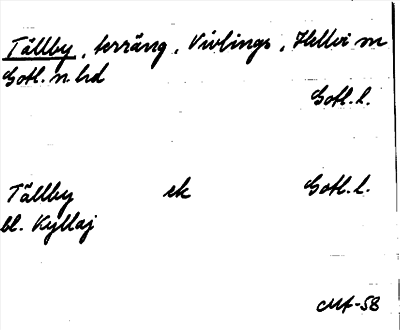 Tällby, terräng, Vivlings, Hellvi sn
Gotl. n. hd
Gotl. l.
Tällby ek Gotl. l.
bl. Kyllaj
MA-58